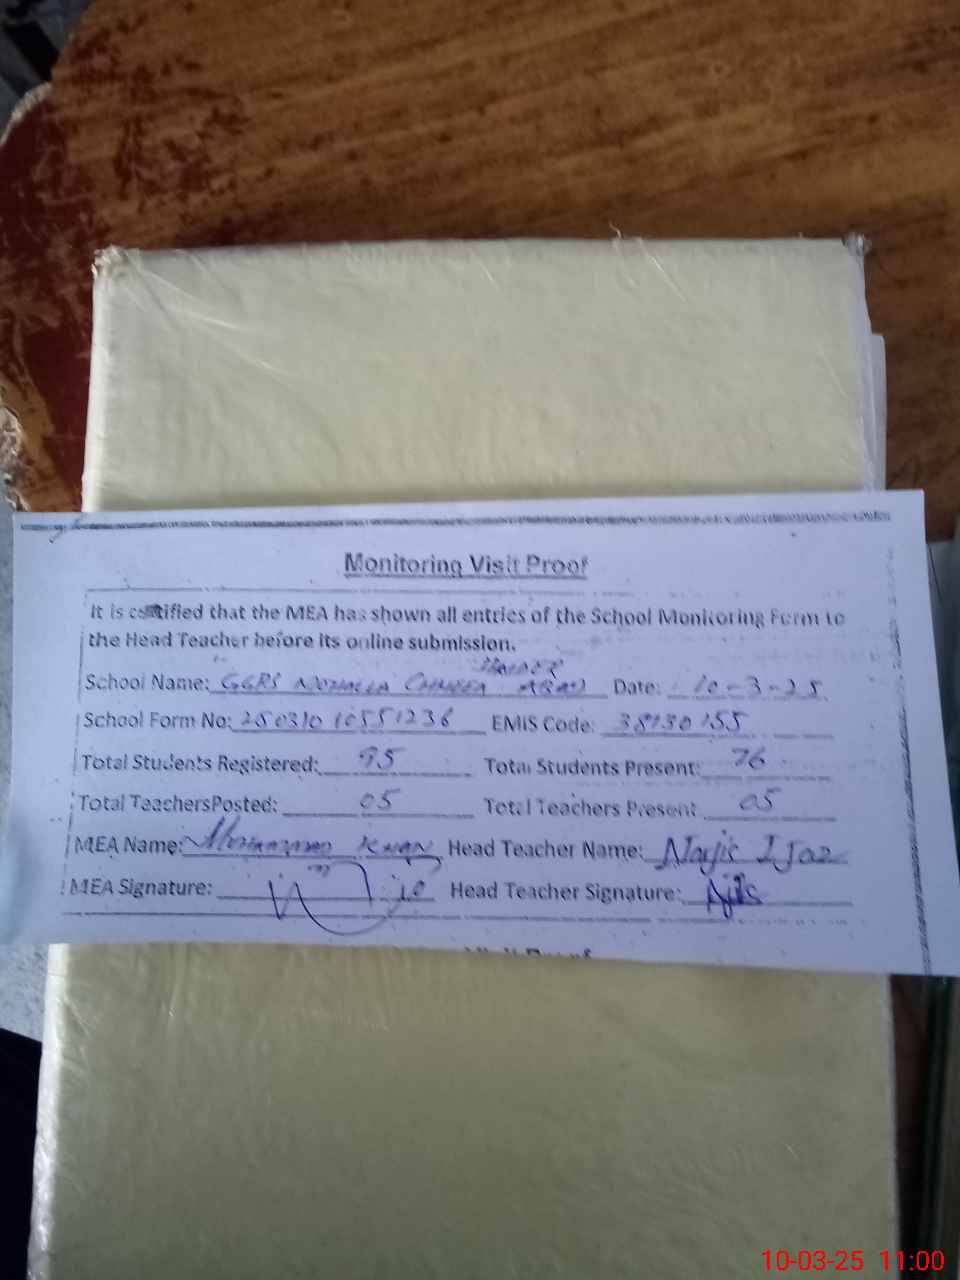 Monitoring Visit Proof
It is certified that the MEA has shown all entries of the School Monitoring Form to
the Head Teacher before its online submission.
HAIDER
School Name: GGPS MOHALLA ABAD Date: 10-3-25
School Form No: 25031010551236 EMIS Code: 38130155
Total Students Registered: 95 Total Students Present: 76
Total TeachersPosted: 05 Total Teachers Present: 05
MEA Name: Mohammad KHAN Head Teacher Name: Ijaz
MEA Signature: Head Teacher Signature:
Visit Proof
10-03-25 11:00